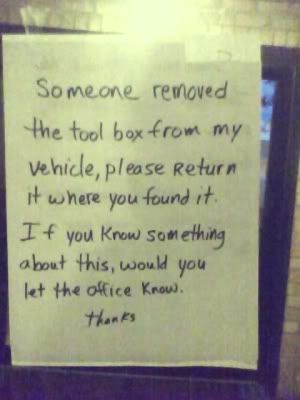 Someone removed
the tool box from my
vehicle, please Return
it where you found it.
If you Know something
about this, would you
let the office Know.
thanks